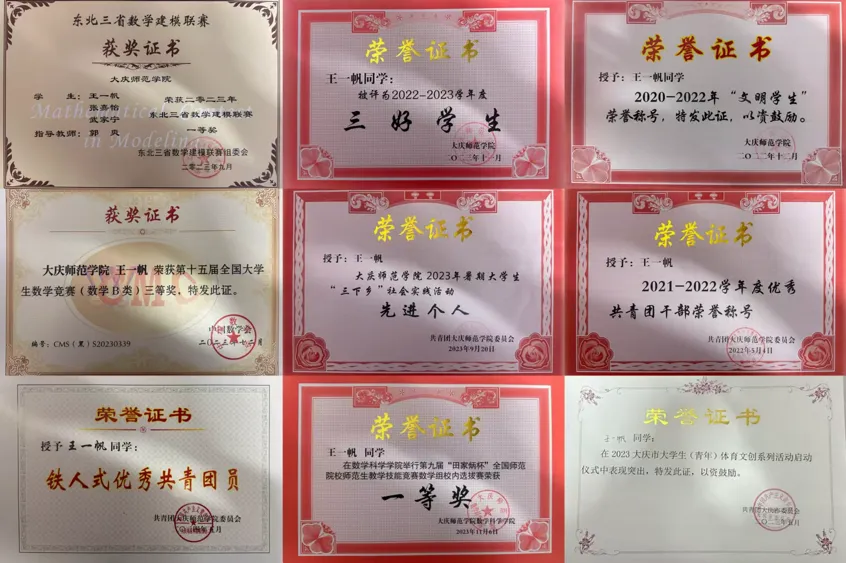 东北三省数学建模联赛
获奖证书
大庆师范学院
学 生：王一帆
张嘉怡
武家宁
指导教师：郭 炎
荣获二〇二三年
东北三省数学建模联赛
一等奖
Mathematical Contest
in Modeling
东北三省数学建模联赛组委会
二零二三年九月
荣誉证书
王一帆同学：
被评为2022-2023学年度
三好学生
大庆师范学院
二〇二三年十一月
荣誉证书
授予：王一帆同学
2020-2022年“文明学生”
荣誉称号，特发此证，以资鼓励。
大庆师范学院
二〇二二年十二月
获奖证书
大庆师范学院 王一帆 荣获第十五届全国大学
生数学竞赛（数学B类）三等奖，特发此证。
CMC
中国数学会
编号：CMS（黑）S20230339
二〇二三年十二月
荣誉证书
授予：王一帆
大庆师范学院2023年暑期大学生
“三下乡”社会实践活动
先进个人
共青团大庆师范学院委员会
2023年9月20日
荣誉证书
授予：王一帆
2021-2022学年度优秀
共青团干部荣誉称号
共青团大庆师范学院委员会
2022年5月4日
荣誉证书
授予王一帆同学：
铁人式优秀共青团员
共青团大庆师范学院委员会
荣誉证书
王一帆 同学：
在数学科学学院举行第九届“田家炳杯”全国师范
院校师范生教学技能竞赛数学组校内选拔赛荣获
一等奖
大庆师范学院数学科学学院
2023年11月6日
荣誉证书
王一帆 同学：
在2023大庆市大学生（青年）体育文创系列活动启动
仪式中表现突出，特发此证，以资鼓励。
共青团大庆市委员会
二〇二三年五月